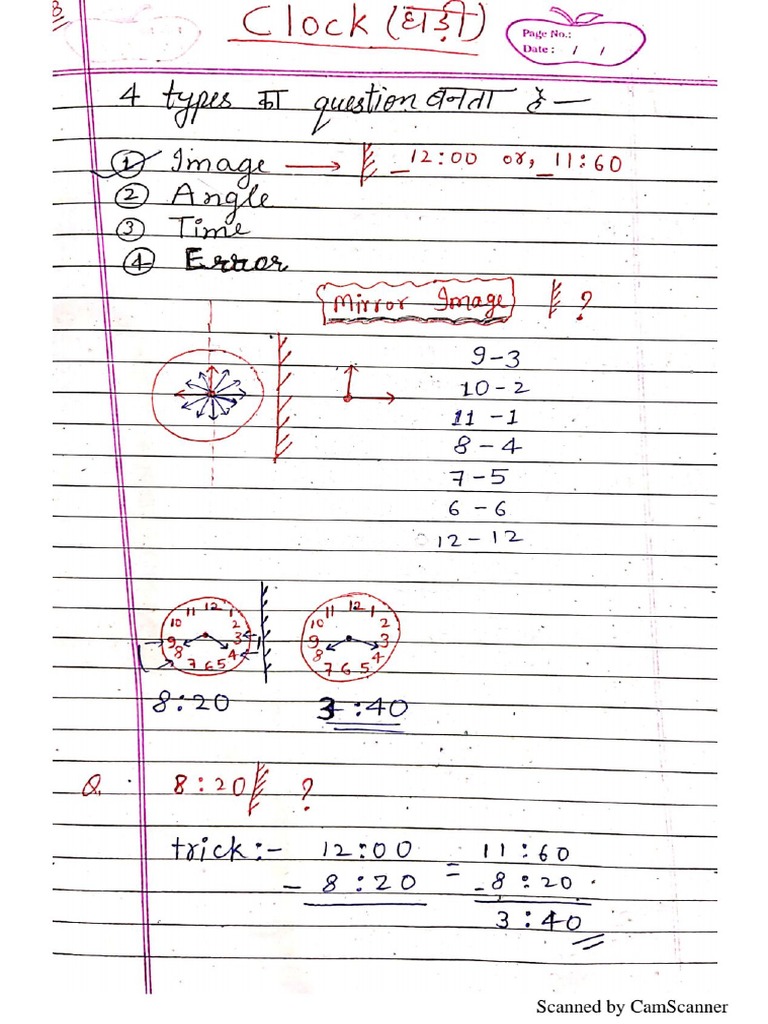 8
Clock (घड़ी)
Page No.:
Date : / /
4 types का question बनता है —
① Image → _12:00 or, _11:60
② Angle
③ Time
④ Error
Mirror Image ?
9-3
10-2
11-1
8-4
7-5
6-6
12-12
11 12 1
10 2
9 3
8 4
7 6 5
11 12 1
10 2
9 3
8 4
7 6 5
8:20 3:40
Q. 8:20 ?
trick:- 12:00 = 11:60
- 8:20 - 8:20
3:40
Scanned by CamScanner